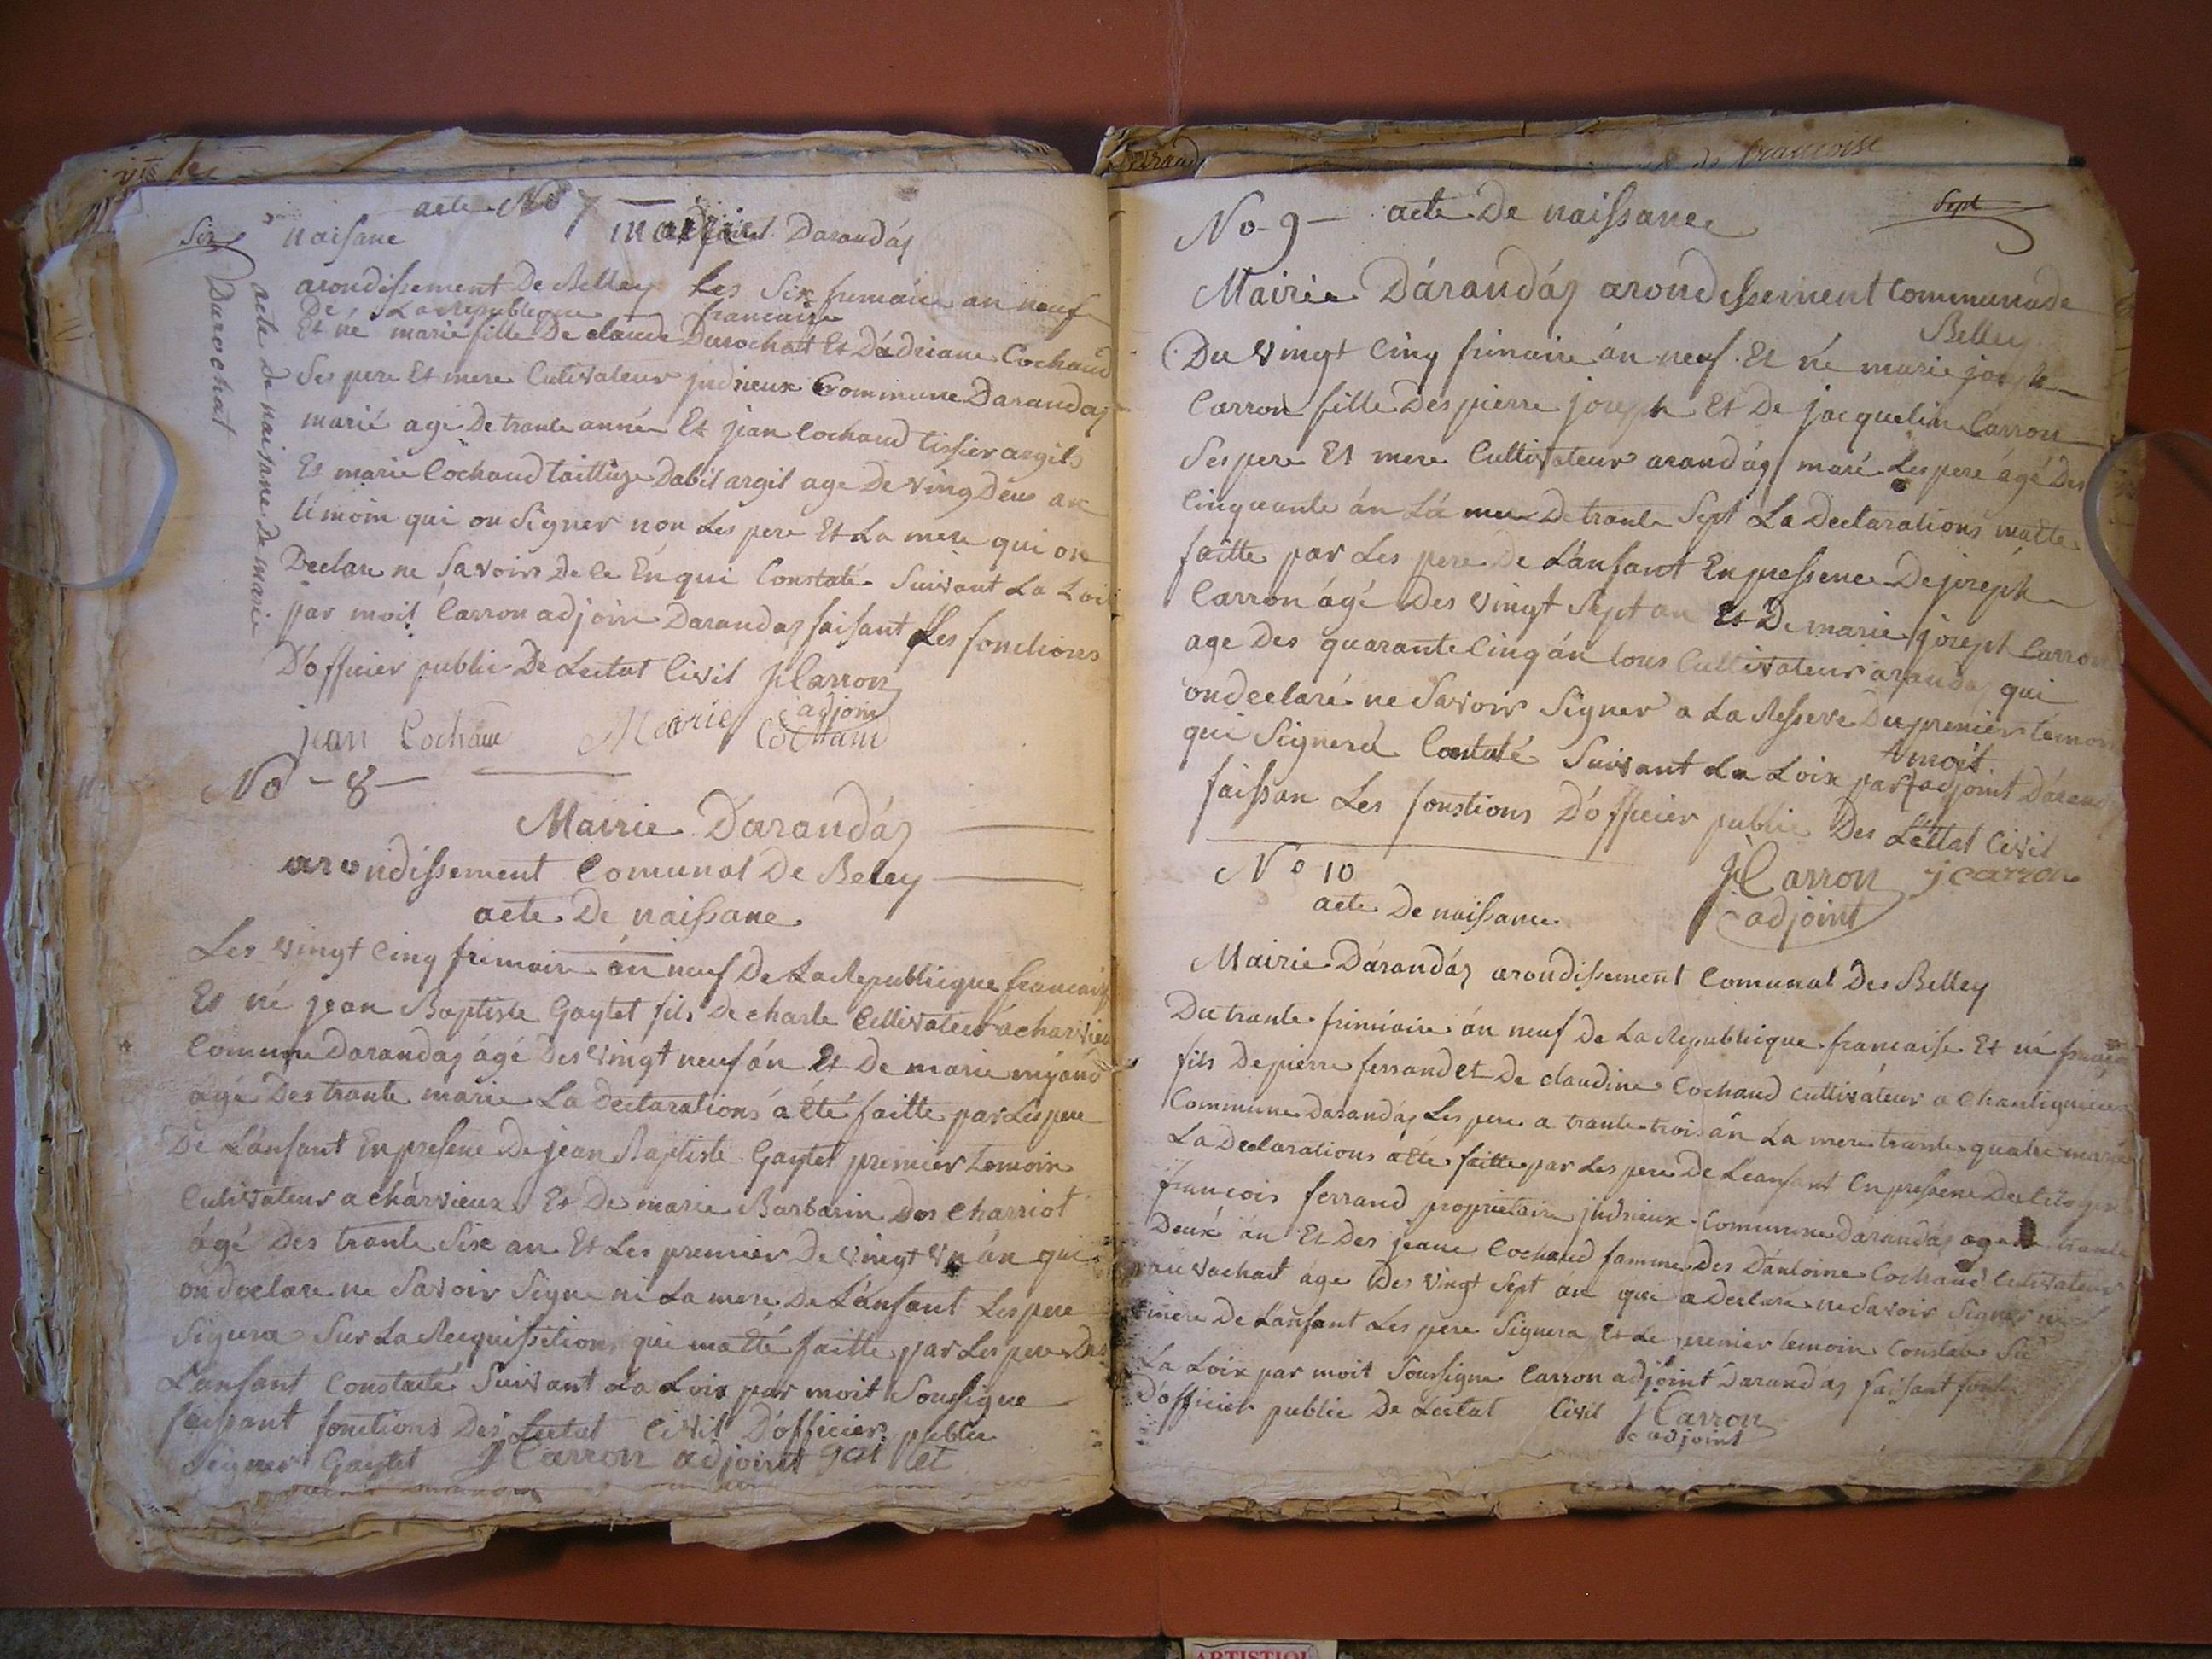 acte No 7
Six naisane mairie Darandas
arondissement De Belley Les Six frimaire an neuf
De La Republique francaise
Et né marie fille De claude Durochat Et Dadriane Cochaud
Ses pere Et mere Cultivateur judrieux Commune Darandas
marié agé De trante année Et jean Cochaud tissier argils
Et marie Cochaud taillieuze Dabit argil age De ving Deus an
témoin qui on Signer non Les pere Et La mere qui on
Declare ne Savoir De ce Enqui Constaté Suivant La Loi
par moit Carron adjoin Darandas faisant Les fonctions
D'officier public De Lectat Civil J Carron
adjoin
jean Cochaud Marie Cochaud
acte De naisane De marie
Durochat
No - 8 -
Mairie Darandás
arondissement Comunal De Beley
acte De naissane
Les vingt Cinq frimaire án neuf De La Republicque francaise
Et né jean Baptiste Gaytet fils De charle Cultivateur á charvieu
Comune Darandas ágé Des vingt neuf án Et De marie
ágé Des trante marie La Declarations á été faitte par Les pere
De L'anfant En presene De jean Baptiste Gaytet premier temoin
Cultivateur a charvieux Et De marie Barbarin Des Charriot
ágé Des trante Six an Et Les premier De vingt un án qui
on declare ne Savoir Signe ni La mere De L'anfant Les pere
Signera Sur La Requissitions qui matté faitte par Les pere Des
L'anfant Constaté Suivant La Loix par moit Soussigne
faissant fonctions Des Lectat Civil D'officier public
Signer Gaytet J Carron adjoint gai tet
Sept
No - 9 - acte De naissance
Mairie Dárandás arondissement Communade
Belley
Du vingt Cinq frimaire án neuf Et né marie joseph
Carron fille Des pierre joseph Et De jacqueline Carron
Ses pere Et mere Cultivateur arandás marié Les pere ágé Des
Cinquante án Lá mere De trante Sept La Declarations matte
faitte par Les pere De L'anfant En pressence De joseph
Carron ágé Des vingt Sept an Et De marie joseph Carron
age Des quarante Cinq án tous Cultivateur arandas qui
on declaré ne Savoir Signer a La Resserve Du premier temoin
qui Signera Contaté Suivant La Loix par moit adjoint Dárandas
faissan Les fonstions D'officier public Des L'ettat Civil
J Carron j carron
adjoint
No 10
acte De naissance
Mairie Dárandás arondissement Comunal Des Belley
Du trante frimaire án neuf De La Republicque francaise Et né
fils De pierre ferrand et De claudine Cochaud cultivateur a
Commune Dárandás Les pere a trante trois án La mere trante quatre marié
La Declarations á été faitte par Les pere De Leanfant En pressene Des
francois ferrand proprietaire judrieux Commune Darandás age trante
Deux án Et Des jeane Cochaud famme Des Dantoine Cochaud Cultivateur
au vachat age Des vingt Sept an qui a Declaré ne Savoir Signer ni
mere De Lanfant Les pere Signera Et Le premier temoin Constaté
La Loix par moit Soussigne Carron adjoint Darandas faisant
D'officier public De Lectat Civil J Carron
adjoint